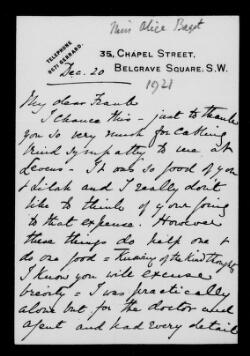 Miss Alice Bagot
TELEPHONE
6671 GERRARD.
35, CHAPEL STREET,
BELGRAVE SQUARE, S.W.
Dec. 20
1921
My dear Frank
I chance this - just to thank
you so very much for cabling
kind sympathy to me at
Levens - It was so good of you
+ Lilah and I really don't
like to think of your going
to that expense. However
these things do help one +
do one good = Knowing of the kind thoughts
I know you will excuse
brevity = I was practically
alone but for the doctor and
agent and had every detail